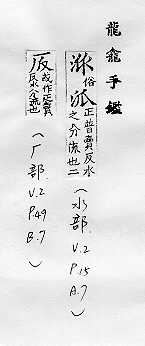 龍龕手鑑
𣲖俗派正普賣反水之分流也二
(水部 V.2 P.15 A.7)
𠂢或作正賣反水分流也
(厂部 V.2 P.49 B.7)